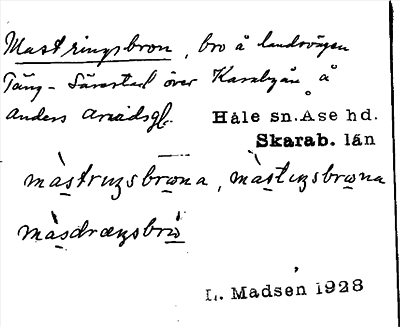 Mastringsbron, bro å landsvägen
Täng - Särestad över Karabyån å
anders arvidsgl.
Håle sn. Åse hd.
Skarab. län
màstruŋsbrωna, màstıŋsbrωna
màsdræŋsbrò
L. Madsen 1928